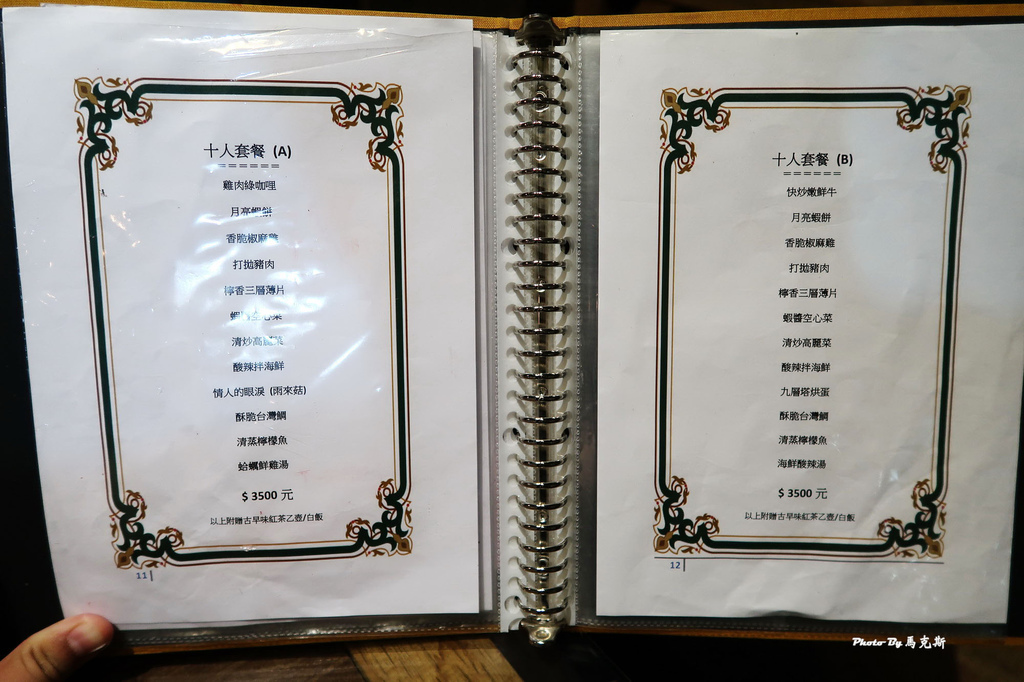 十人套餐 (A)
======
雞肉綠咖哩
月亮蝦餅
香脆椒麻雞
打拋豬肉
檸香三層薄片
蝦醬空心菜
清炒高麗菜
酸辣拌海鮮
情人的眼淚 (雨來菇)
酥脆台灣鯛
清蒸檸檬魚
蛤蠣鮮雞湯
$ 3500 元
以上附贈古早味紅茶乙壺/白飯
11
十人套餐 (B)
======
快炒嫩鮮牛
月亮蝦餅
香脆椒麻雞
打拋豬肉
檸香三層薄片
蝦醬空心菜
清炒高麗菜
酸辣拌海鮮
九層塔烘蛋
酥脆台灣鯛
清蒸檸檬魚
海鮮酸辣湯
$ 3500 元
以上附贈古早味紅茶乙壺/白飯
12
Photo By 馬克斯